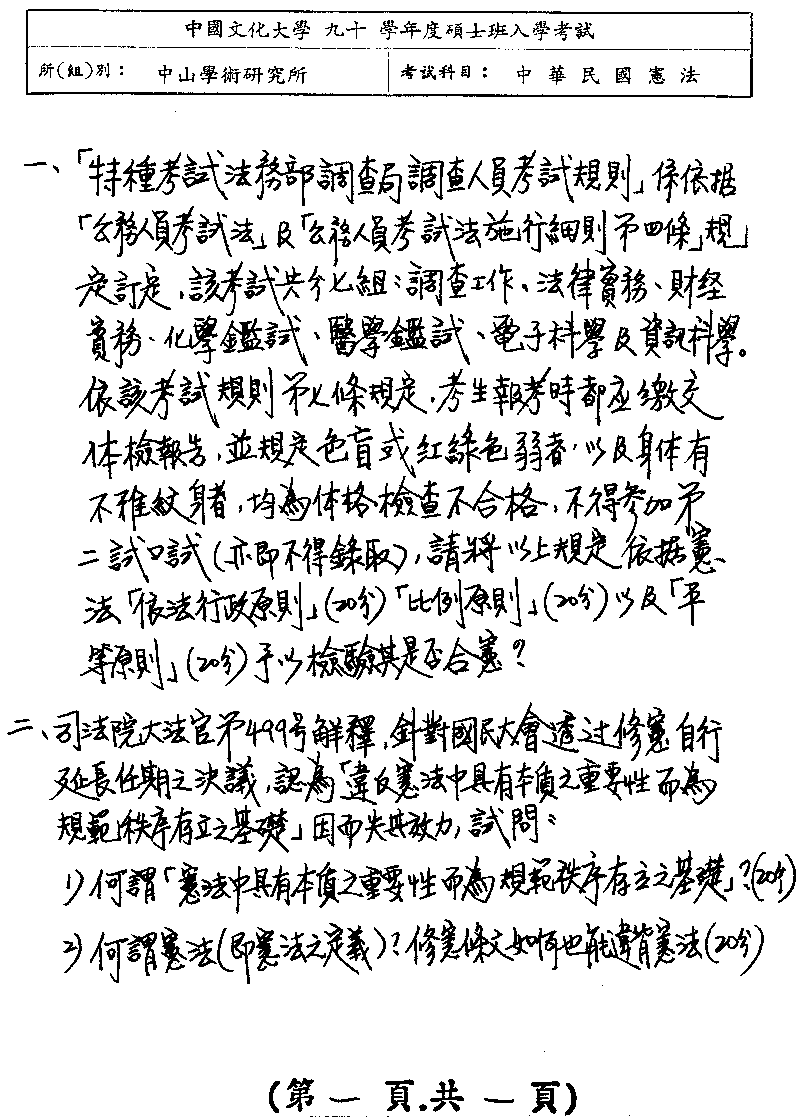 中國文化大學 九十 學年度碩士班入學考試
所(組)別： 中山學術研究所 考試科目： 中華民國憲法
一、「特種考試法務部調查局調查人員考試規則」係依据
「公務人員考試法」及「公務人員考試法施行細則第四條」規
定訂定，該考試共分七組：調查工作、法律實務、財経
實務、化學鑑試、醫學鑑試、電子科學及資訊科學。
依該考試規則第七條規定，考生報考時都应繳交
体檢報告，並規定色盲或紅綠色弱者，以及身体有
不雅紋身者，均為体格檢查不合格，不得參加第
二試口試(亦即不得錄取)，請將以上規定依据憲
法「依法行政原則」(20分)「比例原則」(20分)以及「平
等原則」(20分)予以檢驗其是否合憲？
二、司法院大法官第499号解釋，針對國民大會透过修憲自行
延長任期之決議，認為「違反憲法中具有本質之重要性而為
規範秩序存立之基礎」因而失其效力，試問：
1)何謂「憲法中具有本質之重要性而為規範秩序存立之基礎」？(20分)
2)何謂憲法(即憲法之定義)？修憲條文如何也能違背憲法(20分)
(第一頁.共一頁)